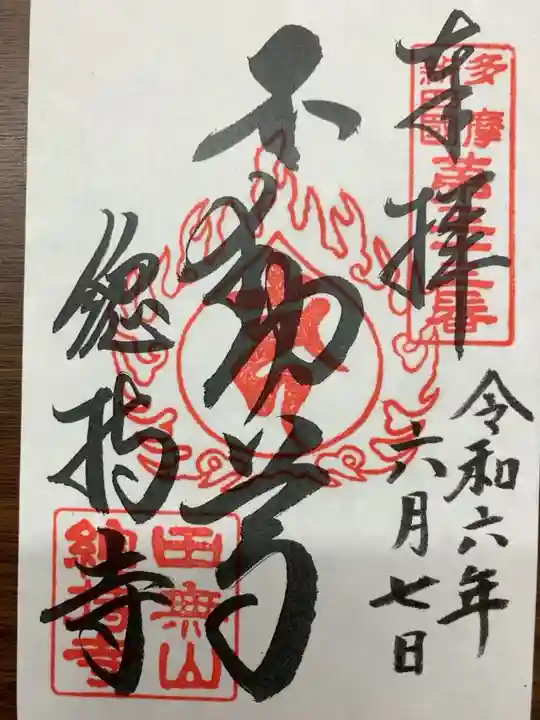 奉拝
多摩
新四国
令和六年
六月七日
不動尊
總持寺
田無山
總持寺